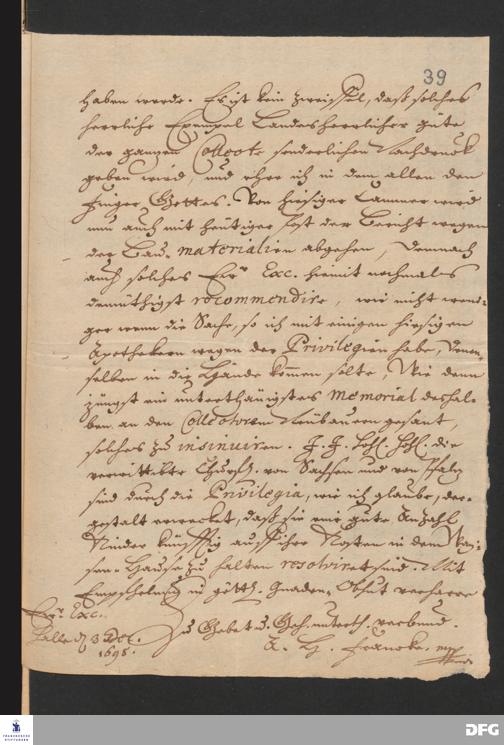 39
haben werde. Es ist kein zweiffel, daß solches
herrliche Exempel Landesherrlicher güte
der ganzen Collecte sonderlichen Nachdruck
geben wird, und ehre ich in dem allen den
Finger Gottes. Von hiesiger Cammer wird
nun auch mit heutiger Post der Bericht wegen
der Bau-materialien abgehen, Demnach
auch solches Ew. Exc. hiemit nochmals
demüthigst recommendire, wie nicht weni-
ger wenn die Sache, so ich mit einigen hiesigen
Apotheckern wegen der Privilegien habe, Denen-
selben in die Hände kommen solte, Wie denn
jüngst ein unterthänigstes memorial deshal-
ben an den Collectorem Neubauern gesant,
solches zu insinuiren. I. I. Hohl. Hohl. die
verwittibte Churfl. von Sachsen und von Pfaltz
sind durch die Privilegia, wie ich glaube, der-
gestalt erwecket, daß sie eine gute Anzahl
Kinder künfftig auff ihre Kosten in dem Way-
sen-Hause zu halten resolviret sind. Mit
Empfehlung in göttl. Gnaden-Obhut verharre
Ew. Exc.
Halle d. 3 Dec.
1698.
zu Gebet u. Geh. unterth. verbund.
A. H. Francke. mp
FRANCKESCHE STIFTUNGEN
DFG